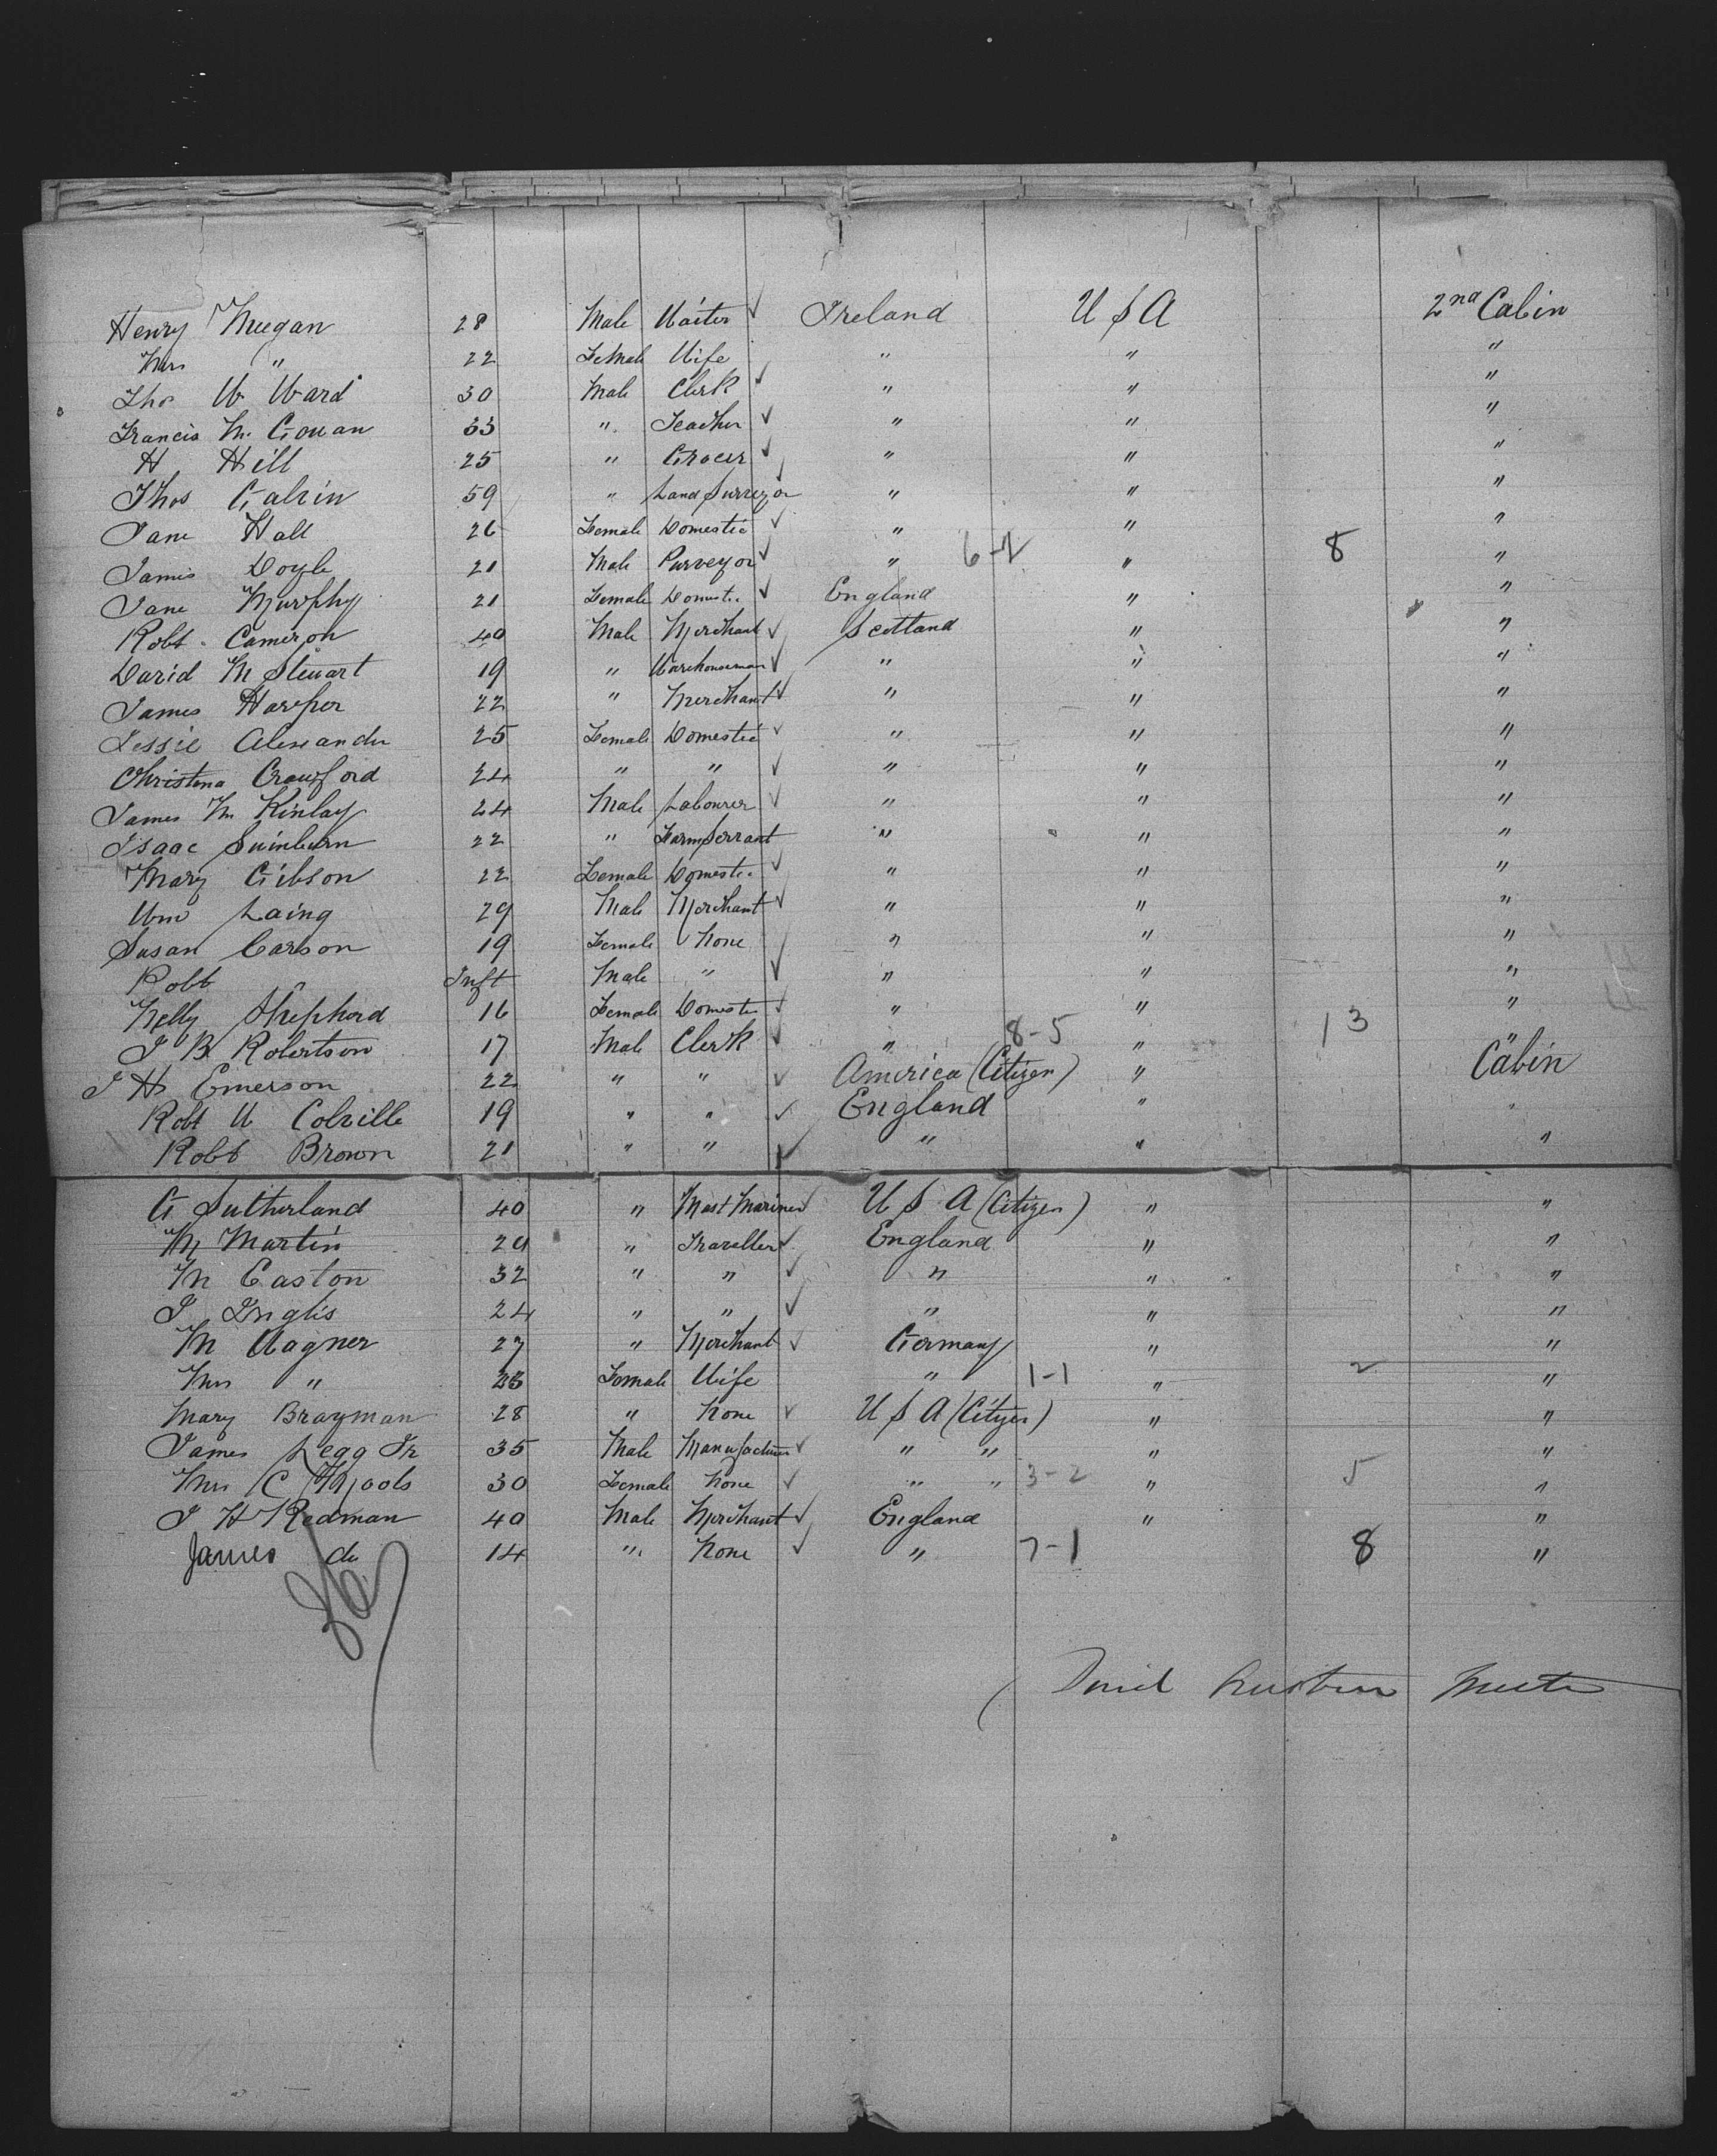 Henry Meegan 28 Male Waiter ✓ Ireland U S A 2nd Cabin
Mrs " 22 Female Wife " " "
Thos W Ward 30 Male Clerk ✓ " " "
Francis Mc Gowan 33 " Teacher ✓ " " "
H Hill 25 " Grocer ✓ " " "
Thos Galvin 59 " Land Surveyor " " "
Jane Hall 26 Female Domestic ✓ " " "
James Doyle 21 Male Purveyor ✓ " 6-2 " 8 "
Jane Murphy 21 Female Domestic ✓ England " "
Robt Cameron 40 Male Merchant ✓ Scotland " "
David M Stewart 19 " Warehouseman ✓ " " "
James Harper 22 " Merchant ✓ " " "
Jessie Alexander 25 Female Domestic ✓ " " "
Christina Crawford 24 " " ✓ " " "
James Mc Kinlay 24 Male Labourer ✓ " " "
Isaac Swinburn 22 " Farm Servant " " "
Mary Gibson 22 Female Domestic ✓ " " "
Wm Laing 29 Male Merchant ✓ " " "
Susan Carson 19 Female None " " "
Robt " Inft Male " ✓ " " "
Nelly Shepherd 16 Female Domestic ✓ " " "
J B Robertson 17 Male Clerk ✓ " 8-5 " 13 "
J H Emerson 22 " " ✓ America (Citizen) " Cabin
Robt W Colville 19 " " ✓ England " "
Robt Brown 21 " " ✓ " " "
G Sutherland 40 " Mast Mariner ✓ U S A (Citizen) " "
M Martin " Traveller ✓ England " "
M Easton 32 " " ✓ " " "
J Inglis 24 " " ✓ " " "
M Wagner 27 " Merchant ✓ Germany " "
Mrs " Female Wife " 1-1 " 2 "
Mary Brayman 28 " None ✓ U S A (Citizen) " "
James Legg Jr 35 Male Manufacturer ✓ " " " "
Mrs C 30 Female None ✓ " " 3-2 " 5 "
J H Redman 40 Male Merchant ✓ England " "
James do 14 " None ✓ " 7-1 8 "
David